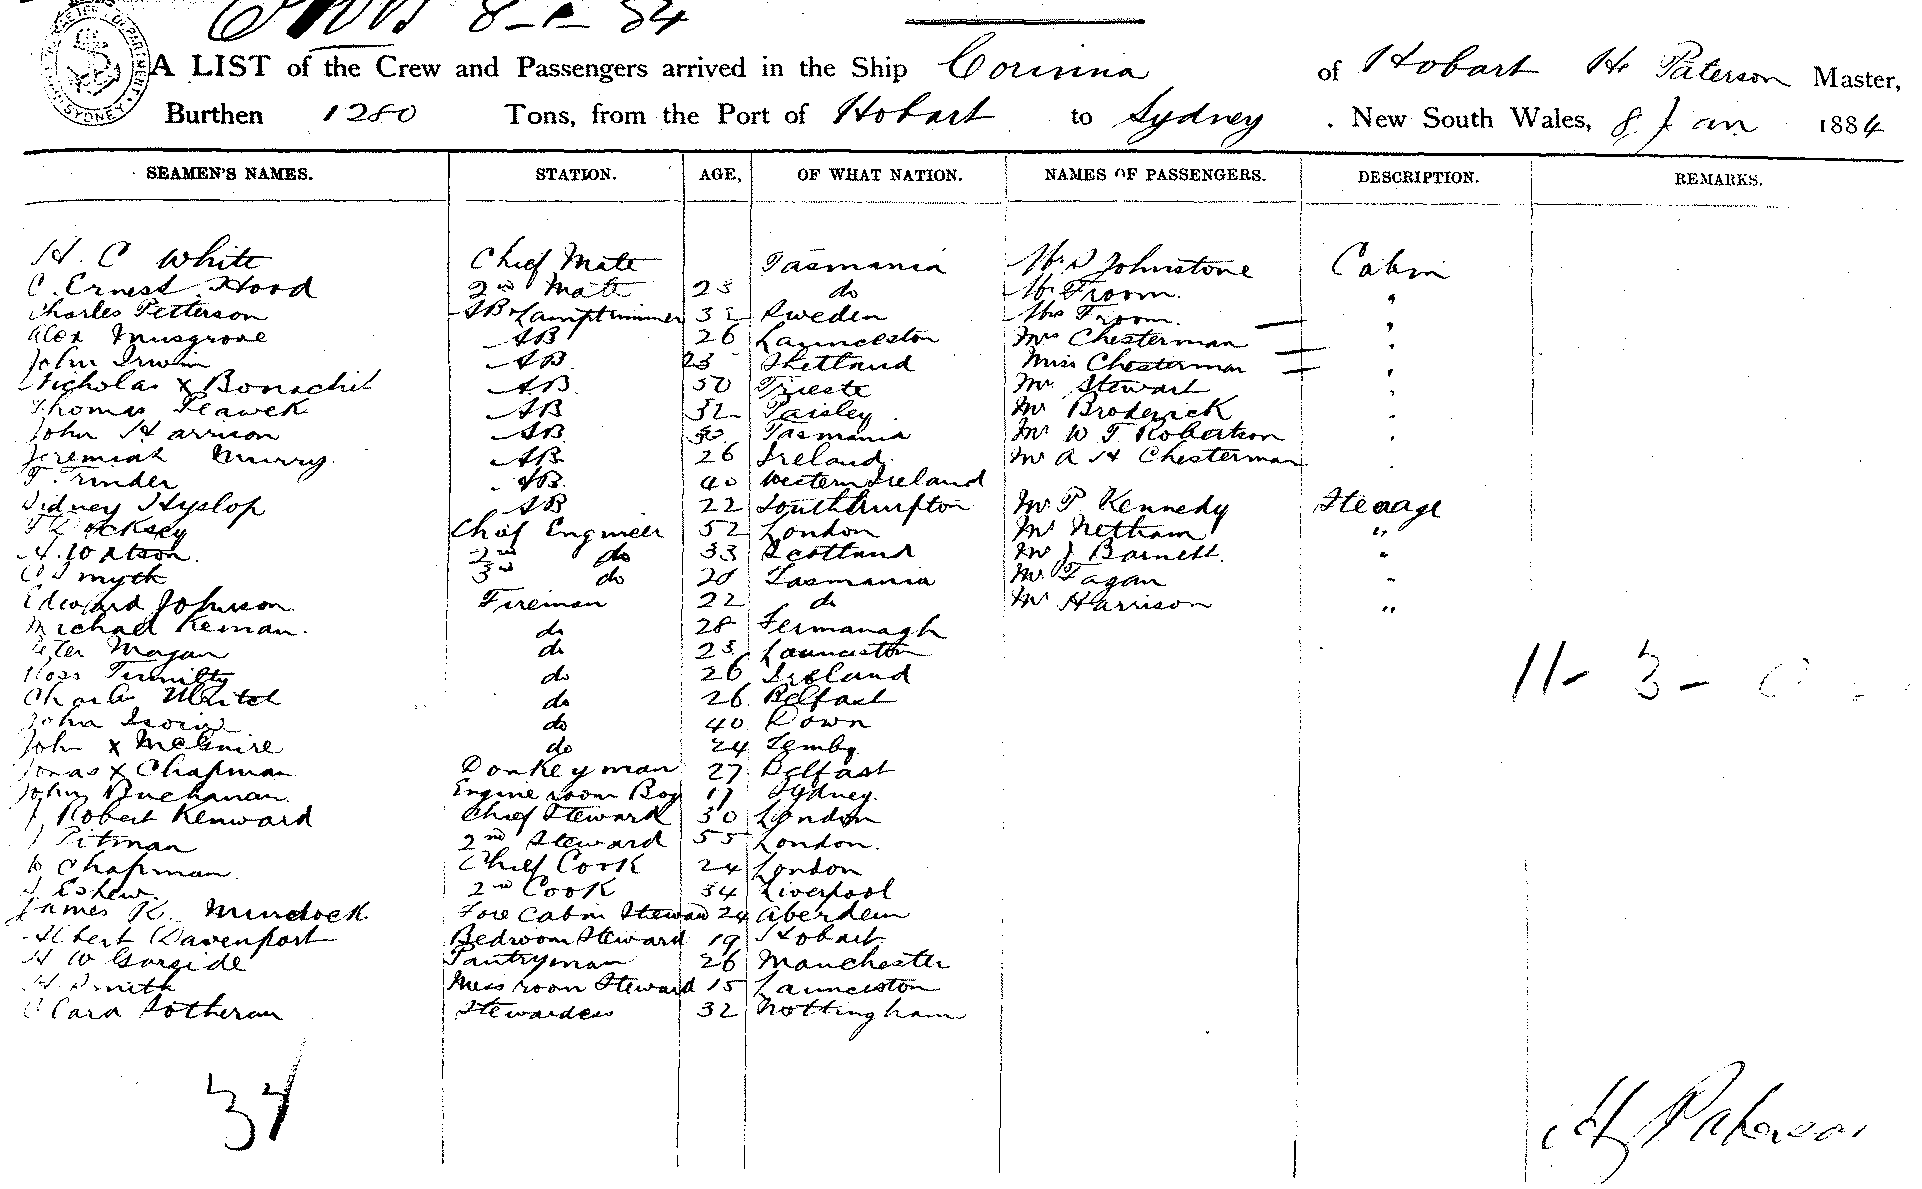 8-1-84
A LIST of the Crew and Passengers arrived in the Ship Corinna of Hobart H Paterson Master,
Burthen 1280 Tons, from the Port of Hobart to Sydney . New South Wales, 8 Jan 1884
SEAMEN'S NAMES. STATION. AGE, OF WHAT NATION. NAMES OF PASSENGERS. DESCRIPTION. REMARKS.
H. C White Chief Mate Tasmania Johnstone Cabin
C. Ernest Hood 2nd Mate 23 do Mr Froom. "
Charles Petterson AB & Lamptrimmer 32 Sweden Mrs Froom. "
Alex Musgrove AB 26 Launceston Mrs Chesterman "
John Irwin AB 25 Shetland Miss Chesterman "
Nicholas x Bonachit AB 50 Trieste Mr Stewart "
Thomas AB 32 Paisley Mr Broderick "
John Harrison AB Tasmania Mr W T Robertson "
Jeremiah Murry. AB 26 Ireland. Mr A H Chesterman "
T. Trinder AB 40 Western Ireland
Sidney Hyslop AB 22 Southhampton Mr P. Kennedy Steerage
Chief Engineer 52 London Mr Netham "
2nd do 33 Scotland Mr J Barnett. "
Smyth 3rd do 28 Tasmania Mr Fagan "
Edward Johnson Fireman 22 do Mr Harrison "
Michael Kernan. do 28 Fermanagh
Peter Magan do 23 Launceston
Ross do 26 Ireland
Charles do 26 Belfast
John Irwin do 40 Down
John x McGuire do 24 Temby.
Jonas x Chapman Donkeyman 27 Belfast
John Buchanan. Engine room Boy 17 Sydney.
J Robert Kenward Chief Steward 30 London
J Pitman 2nd Steward 55 London.
W Chapman Chief Cook 24 London
J Eshew 2nd Cook 34 Liverpool
James K. Murdock Fore Cabin Steward 24 Aberdeen
Albert Davenport Bedroom Steward 19 Hobart
H W Gargide Pantryman 26 Manchester
H. Smith Mess room Steward 15 Launceston
C Cara Sotheran Stewardess 32 Nottingham
11- 3-
34
H Paterson